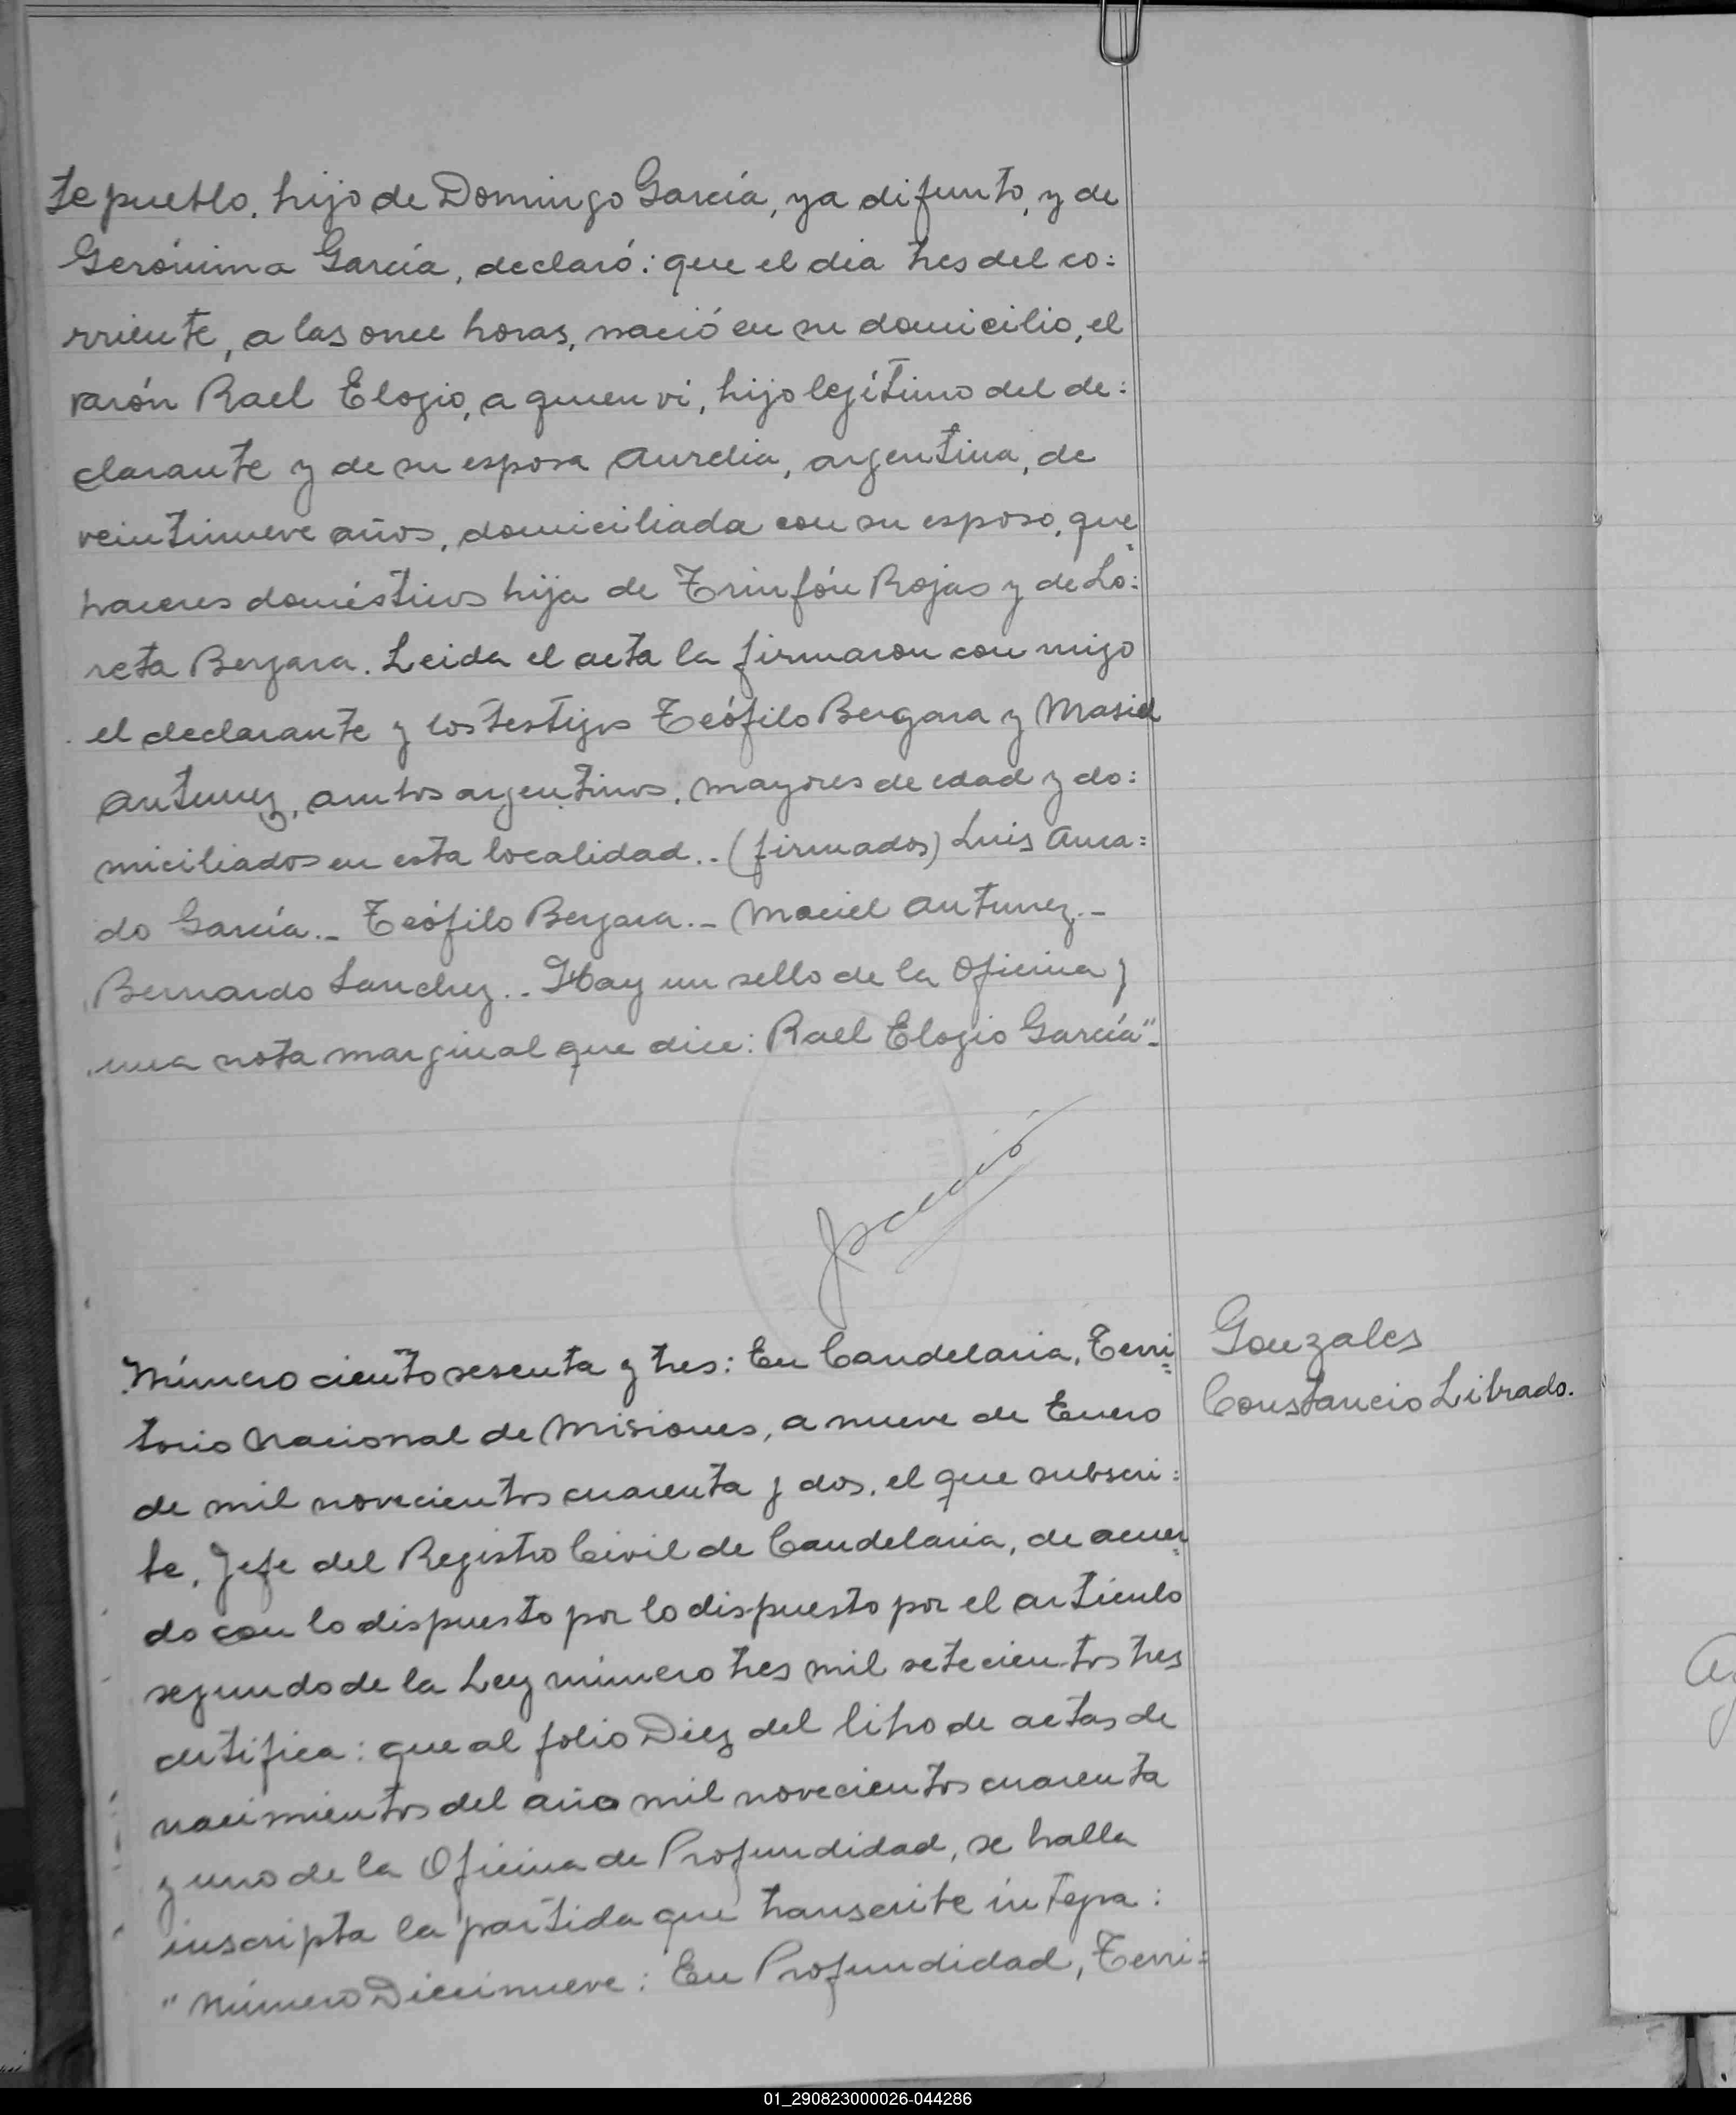 te pueblo, hijo de Domingo García, ya difunto, y de
Gerónima García, declaró: que el dia tres del co=
rriente, a las once horas, nació en su domicilio, el
varón Rael Elogio, a quien vi, hijo legítimo del de=
clarante y de su esposa Aurelia, argentina, de
veintinueve años, domiciliada con su esposo, que=
haceres domésticos hija de Trinfón Rojas y de Lo=
reta Bergara. Leida el acta la firmaron con migo
el declarante y los testigos Teófilo Bergara y Masiel
Antunez, ambos argentinos, mayores de edad y do=
miciliados en esta localidad.. (firmados) Luis Ama=
do García._ Teófilo Bergara._ Maciel Antunez._
Bernardo Sanchez.. Hay un sello de la Oficina y
una nota marginal que dice: Rael Elogio García"_
Número ciento sesenta y tres: En Candelaria, Terri=
torio Nacional de Misiones, a nueve de Enero
de mil novecientos cuarenta y dos, el que subscri=
be, Jefe del Registro Civil de Candelaria, de acuer=
do con lo dispuesto por lo dispuesto por el artículo
segundo de la Ley número tres mil setecientos tres
certifica: que al folio Diez del libro de actas de
nacimientos del año mil novecientos cuarenta
y uno de la Oficina de Profundidad, se halla
inscripta la partida que transcribe íntegra:
"Número Diecinueve: En Profundidad, Terri=
Gonzales
Constancio Librado.
01_290823000026-044286